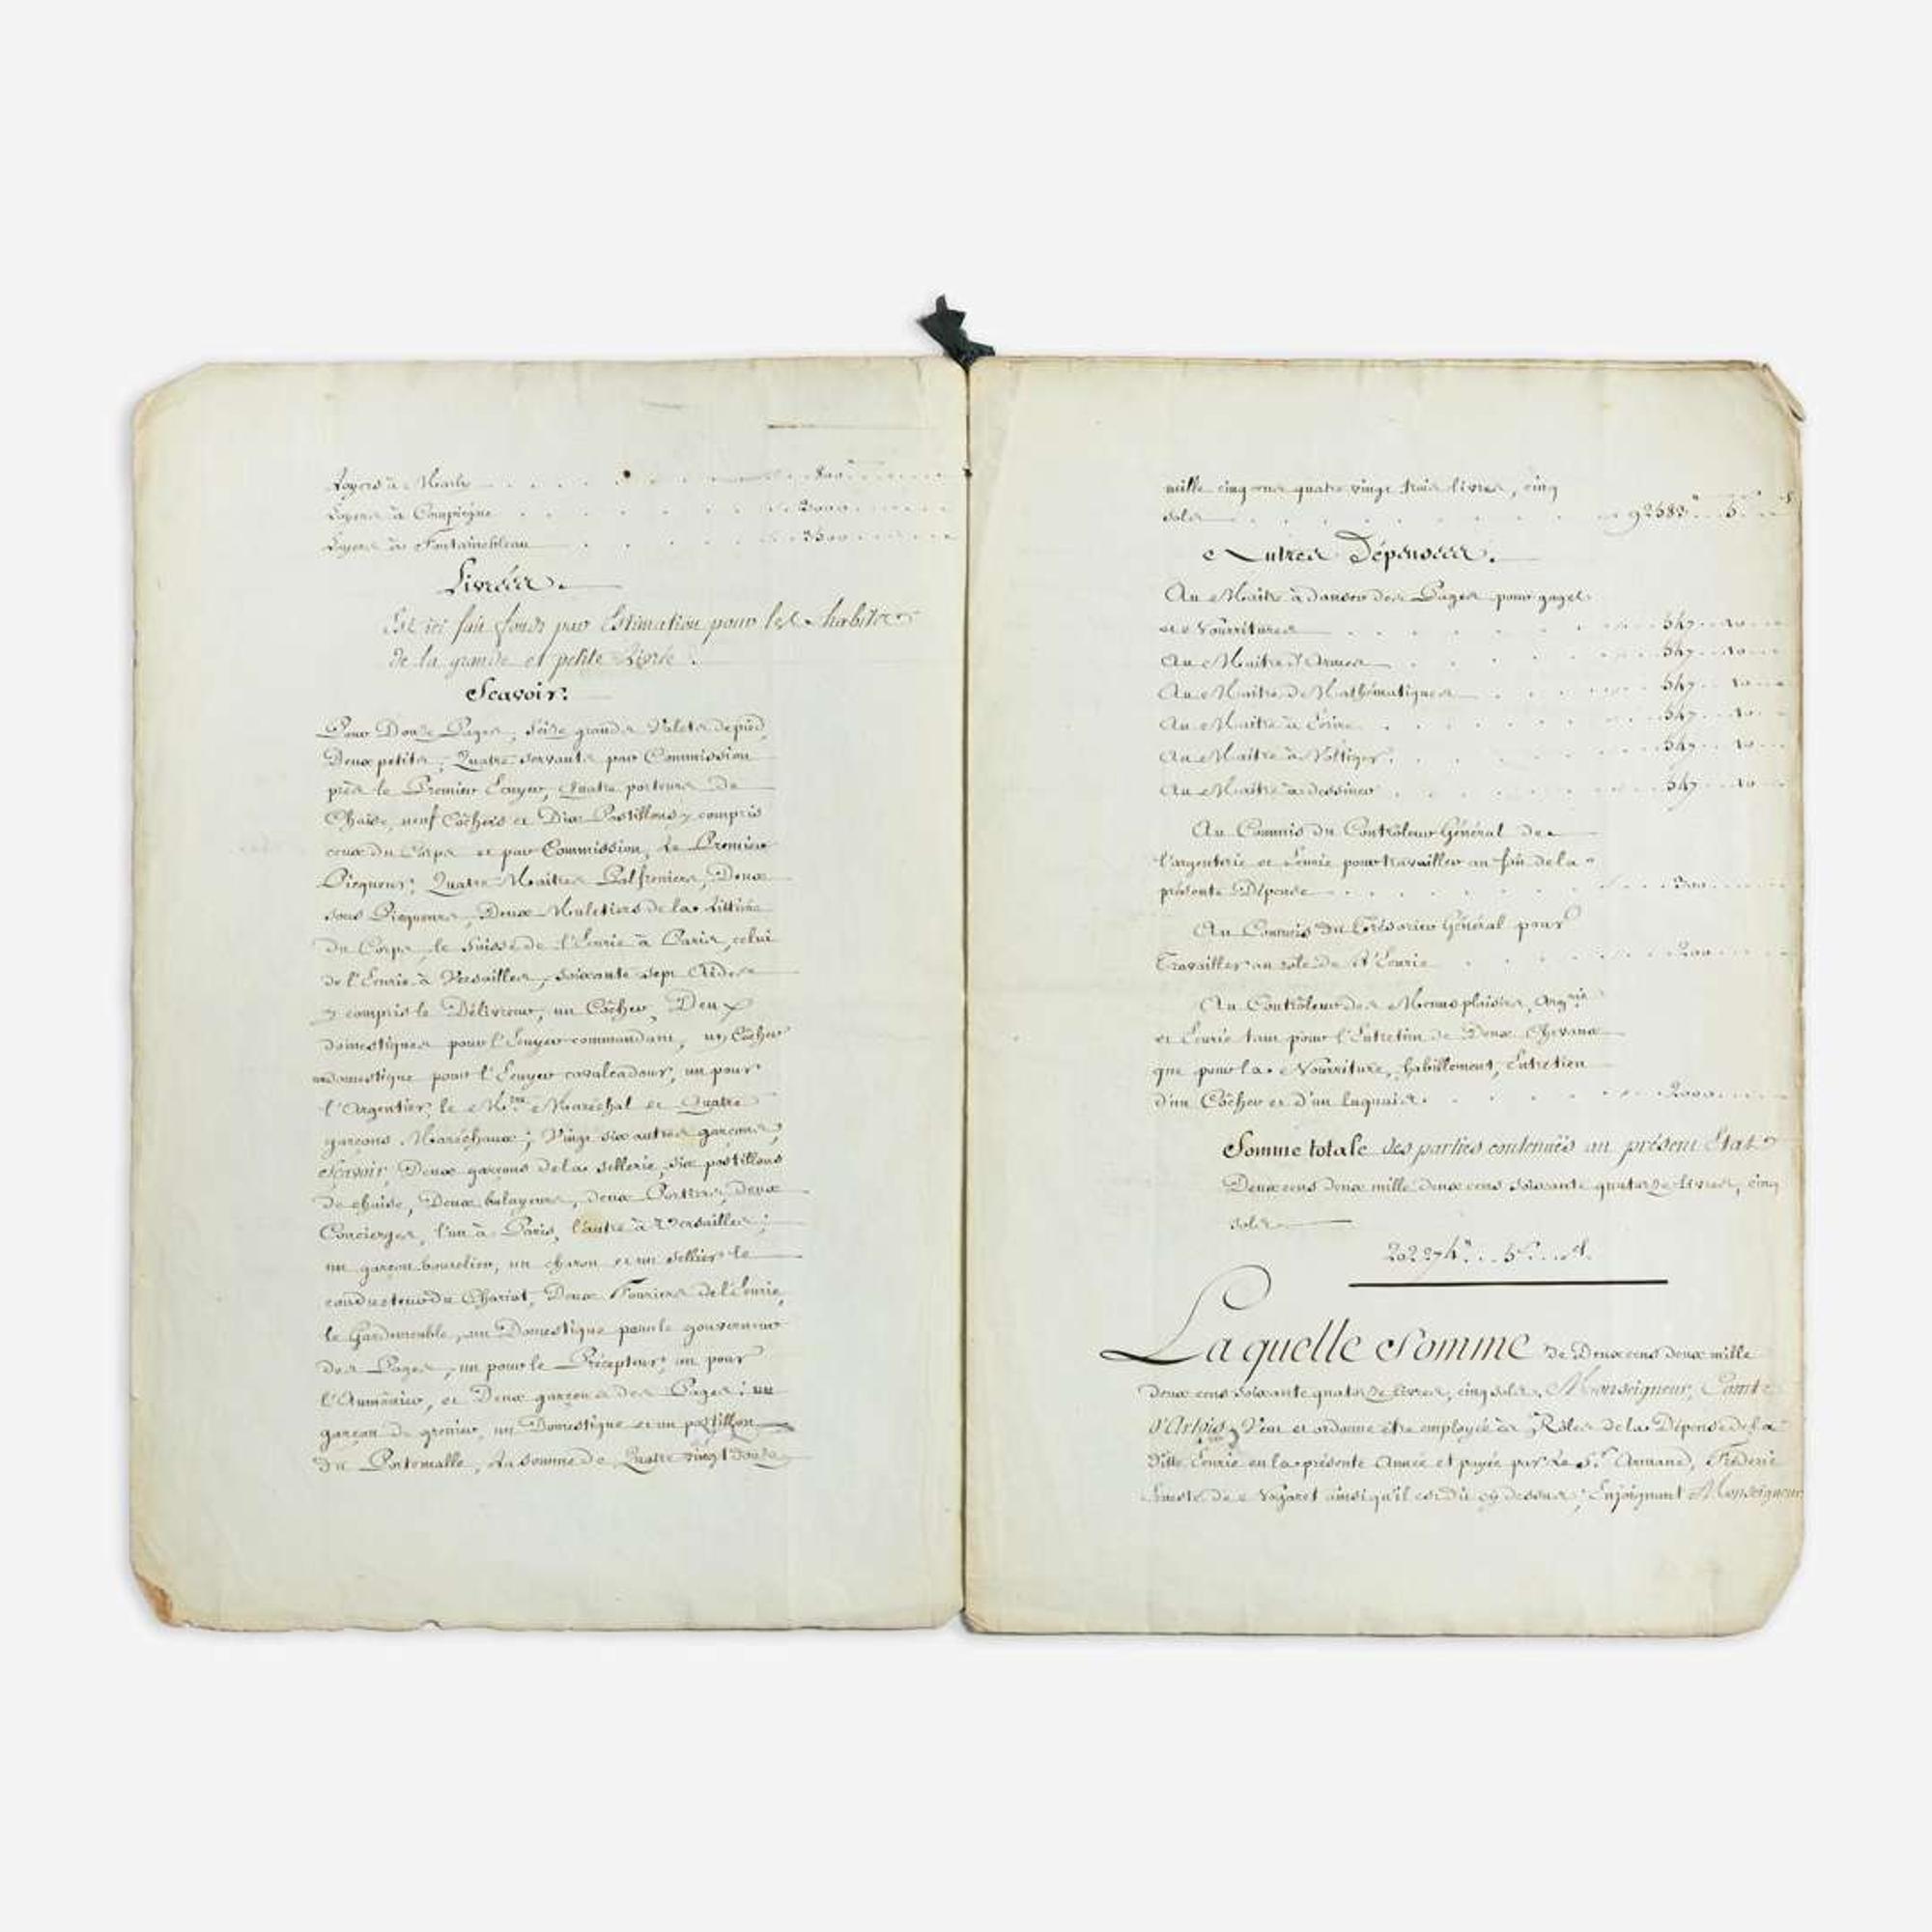 Loyers à Marly . . . . . . . . 800# . . . . .
Loyers à Compiegne . . . . . . . . 2000 . . . . .
Loyers à Fontainebleau . . . . . . . 3500 . . . . .
Livrées.
Est ici fait fonds par Estimation pour les habits
de la grande et petite Livrée.
Scavoir:
Pour Douze Pages, seize grands Valets de pied,
Deux petits, Quatre servants par Commission
près le Premier Ecuyer, Quatre porteurs de
Chaise, neuf Côchers et Dix Postillons y compris
ceux du Corps et par Commission, Le Premier
Picqueur, Quatre Maitres Palfreniers, Deux
sous Picqueurs, Deux Muletiers de la Littiere
du Corps, le Suisse de l'Ecurie à Paris, celui
de l'Ecurie à Versailles, soixante sept Aides
y compris le Délivreur, un Côcher, Deux
domestiques pour l'Ecuyer commandant, un Côcher
domestique pour l'Ecuyer cavalcadour, un pour
l'Argentier, le Mtre Maréchal et Quatre
garçons Maréchaux; Vingt six autres garçons,
Scavoir, Deux garçons de la sellerie, six postillons
de chaise, Deux balayeurs, deux Portiers, deux
Concierges, l'un à Paris, l'autre à Versailles;
un garçon bourelier, un charon et un sellier le
conducteur du Chariot, Deux Fouriers de l'Ecurie,
le Gardemeuble, un Domestique pour le gouverneur
des Pages, un pour le Précepteur, un pour
l'Aumônier, et Deux garçons des Pages; un
garçon de grenier, un Domestique et un postillon
du Portemalle, La somme de Quatre vingt douze
mille cinq cens quatre vingt trois livres, cinq
sols . . . . . . . . . 92583# . . 5s . .
Autres Dépenses.
Au Maitre à danser des Pages pour gages
et Nourritures . . . . . . . 547 . . 10 . . .
Au Maitre d'Armes . . . . . . . 547 . . 10 . . .
Au Maitre de Mathématiques . . . . . 547 . . 10 . . .
Au Maitre à Ecrire . . . . . . . 547 . . 10 . . .
Au Maitre à Voltiger . . . . . . . 547 . . 10 . . .
Au Maitre à dessiner . . . . . . . 547 . . 10 . . .
Au Commis du Contrôleur Général de
l'argenterie et Ecurie pour travailler au fait de la
présente Dépense . . . . . . . 300 . . . . .
Au Commis du Trésorier Général pour
Travailler au role de l'Ecurie . . . . . 200 . . . . .
Au Contrôleur des Menus plaisirs, Argrie
et Ecurie tant pour l'Entretien de Deux Chevaux
que pour la Nourriture, habillement, Entretien
d'un Côcher et d'un laquais . . . . . . 2000 . . . . .
Somme totale des parties contenuës au présent Etat
Deux cens deux mille deux cens soixante quatorze livres, cinq
sols
202274# . . 5s . . . d.
Laquelle Somme de Deux cens deux mille
deux cens soixante quatorze livres, cinq sols, Monseigneur, Comte
d'Artois, Veut et ordonne être employée és Rôles de la Dépense de sa
ditte Ecurie en la présente Année et payée par Le Sr. Armand, Fréderic
Ernest de Nogaret ainsi qu'il est dit cy dessus; Enjoignant Monseigneur